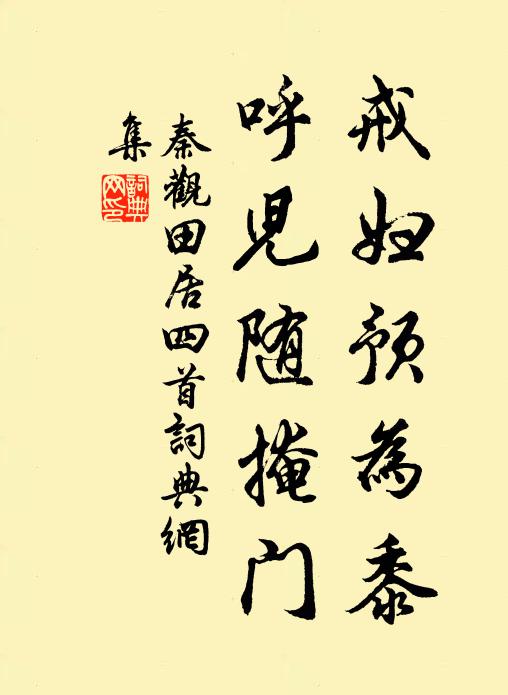 戒妇预为黍
呼児随掩门
秦觀田居四首詞典網
集
詞典
网印